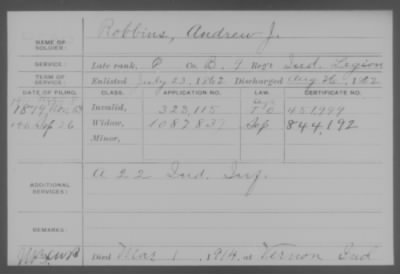 NAME OF SOLDIER: Robbins, Andrew J.
SERVICE: Late rank, Co. B. 9 Reg't Ind. Legion
TERM OF SERVICE: Enlisted July 23, 1862 Discharged Aug 1862
DATE OF FILING. CLASS. APPLICATION NO. LAW. CERTIFICATE NO.
1879, Nov. Invalid, 323,115 451,999
Sep 26 Widow, 1087837 Sep 844,192
Minor,
ADDITIONAL SERVICES: A 22 Ind. Inf.
REMARKS:
Died Mar 1, 1914, at Vernon Ind